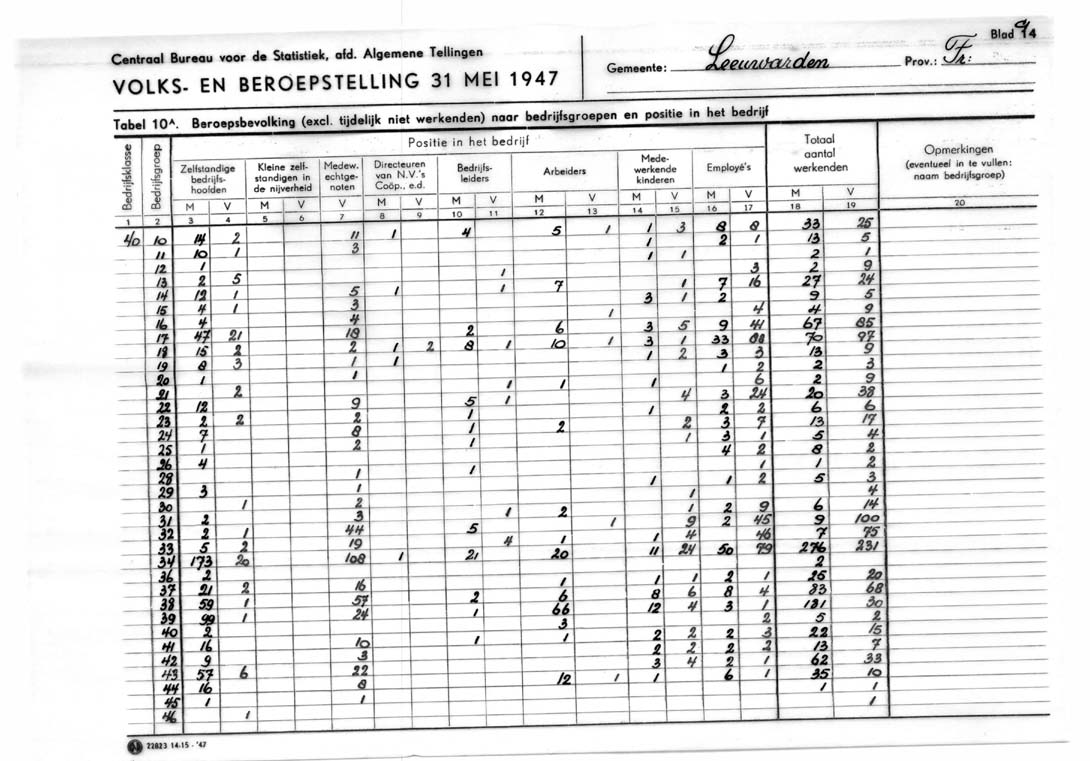 Blad 94
Centraal Bureau voor de Statistiek, afd. Algemene Tellingen
VOLKS- EN BEROEPSTELLING 31 MEI 1947
Gemeente: Leeuwarden Prov.: Fr:
Tabel 10A. Beroepsbevolking (excl. tijdelijk niet werkenden) naar bedrijfsgroepen en positie in het bedrijf
Bedrijfsklasse Bedrijfsgroep Positie in het bedrijf Totaal aantal werkenden Opmerkingen (eventueel in te vullen: naam bedrijfsgroep)
Zelfstandige bedrijfs- hoofden Kleine zelf- standigen in de nijverheid Medew. echtge- noten Directeuren van N.V.'s Coöp., e.d. Bedrijfs- leiders Arbeiders Mede- werkende kinderen Employé's
M V M V V M V M V M V M V M V M V
1 2 3 4 5 6 7 8 9 10 11 12 13 14 15 16 17 18 19 20
40 10 14 2 11 1 4 5 1 1 3 8 8 33 25
11 10 1 3 1 2 1 13 5
12 1 1 1 2 1
13 2 5 1 3 2 9
14 12 1 5 1 1 7 1 7 16 27 24
15 4 1 3 3 1 2 9 5
16 4 4 1 4 4 9
17 47 21 18 2 6 3 5 9 41 67 85
18 15 2 2 1 2 8 1 10 1 3 1 33 88 70 97
19 8 3 1 1 1 2 3 3 13 9
20 1 1 1 2 2 3
21 2 1 1 1 6 2 9
22 12 9 5 1 4 3 24 20 38
23 2 2 2 1 1 2 2 6 6
24 7 8 1 2 2 3 7 13 17
25 1 2 1 1 3 1 5 4
26 4 4 2 8 2
28 1 1 1 1 2
29 3 1 1 1 2 5 3
30 1 2 1 4
31 2 3 1 2 1 2 9 6 14
32 2 1 44 5 1 9 2 45 9 100
33 5 2 19 4 1 1 4 46 7 75
34 173 20 108 1 21 20 11 24 50 79 276 231
36 2 2
37 21 2 16 1 1 1 2 1 25 20
38 59 1 57 2 6 8 6 8 4 83 68
39 99 1 24 1 66 12 4 3 1 181 30
40 2 3 2 5 2
41 16 10 1 1 2 2 2 3 22 15
42 9 3 2 2 2 2 13 7
43 57 6 22 3 4 2 1 62 33
44 16 8 12 1 1 6 1 35 10
45 1 1 1 1
46 1 1
22823 14-15 - '47